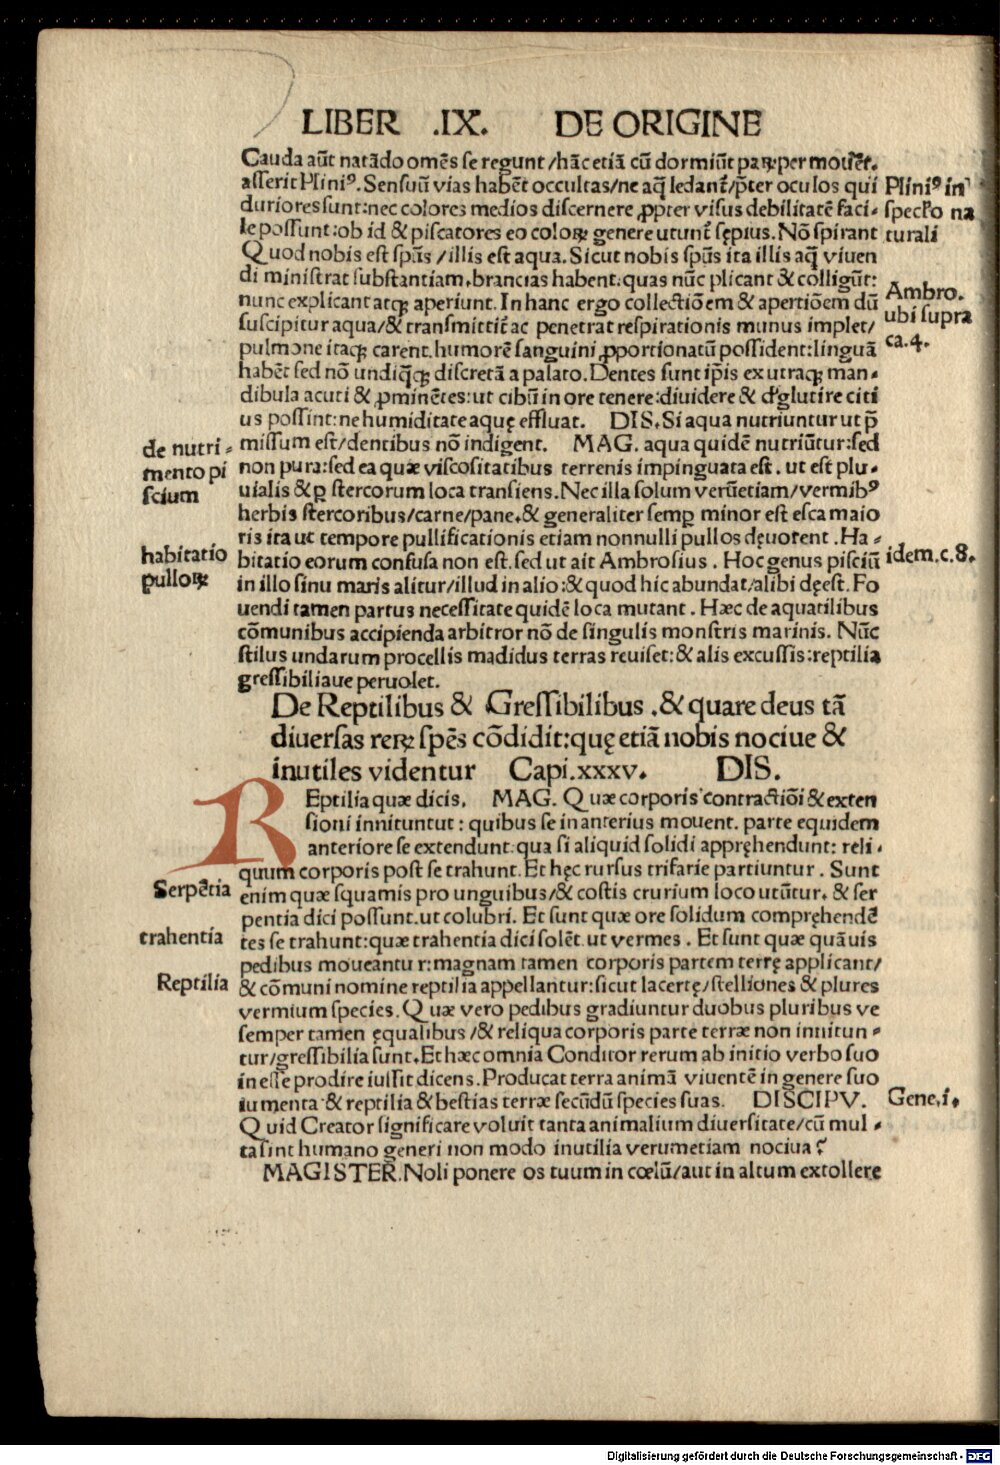 LIBER .IX. DE ORIGINE
Cauda aūt natādo omēs se regunt/hāc etiā cū dormiūt parꝝper mouēt.
asserit Pliniꝰ. Sensuū vias habēt occultas/ne aq̄ ledant̄/p̄ter oculos qui
duriores sunt:nec colores medios discernere ꝓpter visus debilitatē faci⸗
le possunt:ob id & piscatores eo coloꝝ genere utunt̄ sępius. Nō spirant
Pliniꝰ in
speclo na
turali
Quod nobis est spūs/illis est aqua. Sicut nobis spūs ita illis aq̄ viuen
di ministrat substantiam.brancias habent:quas nūc plicant & colligūt:
nunc explicant atqꝫ aperiunt. In hanc ergo collectiōem & apertiōem dū
suscipitur aqua/& transmittit̄ ac penetrat respirationis munus implet/
pulmone itaqꝫ carent.humorē sanguini ꝓportionatū possident:linguā
Ambro.
ubi supra
ca.4.
habēt sed nō undiq̄qꝫ discretā a palato. Dentes sunt ip̄is ex utraqꝫ man⸗
dibula acuti & ꝓminētes:ut cibū in ore tenere:diuidere & d'glutire citi
us possint:ne humiditate aquę effluat. DIS. Si aqua nutriuntur ut p̄
missum est/dentibus nō indigent. MAG. aqua quidē nutriūtur:sed
non pura:sed ea quæ viscositatibus terrenis impinguata est. ut est plu⸗
uialis & ꝑ stercorum loca transiens. Nec illa solum verūetiam/vermibꝰ
de nutri⸗
mento pi
scium
herbis stercoribus/carne/pane.& generaliter semꝑ minor est esca maio
ris ita ut tempore pullificationis etiam nonnulli pullos dęuorent. Ha⸗
bitatio eorum confusa non est.sed ut ait Ambrosius. Hoc genus pisciū
habitatio
pulloꝝ
idem.c.8.
in illo sinu maris alitur/illud in alio:& quod hic abundat/alibi dęest. Fo
uendi tamen partus necessitate quidē loca mutant. Hæc de aquatilibus
cōmunibus accipienda arbitror nō de singulis monstris marinis. Nūc
stilus undarum procellis madidus terras reuiset:& alis excussis:reptilia
gressibiliaue peruolet.
De Reptilibus & Gressibilibus .& quare deus tā
diuersas reꝝ spēs cōdidit:quę etiā nobis nociue &
inutiles videntur Capi.xxxv. DIS.
REptilia quæ dicis. MAG. Quæ corporis contractiōi & exten
sioni innituntut: quibus se in anterius mouent. parte equidem
anteriore se extendunt:qua si aliquid solidi appręhendunt: reli⸗
quum corporis post se trahunt. Et hęc rursus trifarie partiuntur. Sunt
enim quæ squamis pro unguibus/& costis crurium loco utūtur. & ser
pentia dici possunt.ut colubri. Et sunt quæ ore solidum compręhendē
Serpētia
tes se trahunt:quæ trahentia dici solēt.ut vermes. Et sunt quæ quāuis
trahentia
pedibus moueantur:magnam tamen corporis partem terrę applicant/
& cōmuni nomine reptilia appellantur:sicut lacertę/stelliones & plures
Reptilia
vermium species. Quæ vero pedibus gradiuntur duobus pluribus ve
semper tamen ęqualibus/& reliqua corporis parte terræ non innitun⸗
tur/gressibilia sunt. Et hæc omnia Conditor rerum ab initio verbo suo
in esse prodire iussit dicens. Producat terra animā viuentē in genere suo
iumenta & reptilia & bestias terræ secūdū species suas. DISCIPV.
Gene.i.
Quid Creator significare voluit tanta animalium diuersitate/cū mul⸗
ta sint humano generi non modo inutilia verumetiam nociua?
MAGISTER. Noli ponere os tuum in cœlū/aut in altum extollere
Digitalisierung gefördert durch die Deutsche Forschungsgemeinschaft - DFG